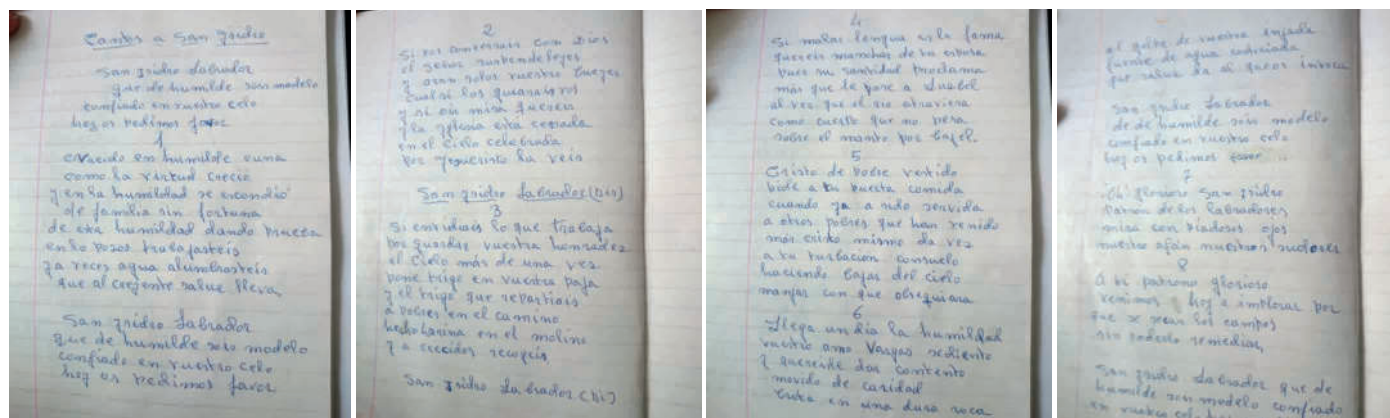 Cantos a San Ysidro
San Ysidro Labrador
que de humilde sois modelo
confiado en vuestro celo
hoy os pedimos favor
1
Nacido en humilde cuna
como la virtud crecio
y en la humildad se escondió
de familia sin fortuna
de esta humildad dando prueba
en los pozos trabajasteis
y a veces agua alumbrasteis
que al creyente salud lleva,
San Ysidro Labrador
que de humilde sois modelo
confiado en vuestro celo
hoy os pedimos favor
2
Si vos conversais con Dios
el Señor
y aran solos vuestro bueyes
cual si los guiarais vos
y si oir misa quereis
y la Yglesia está cerrada
en el cielo celebrada
por la veis
San Ysidro Labrador (bis)
3
Si envidiais lo que trabaja
por guardar vuestra honradez
el cielo más de una vez
pone trigo en vuestra paja
y el trigo que repartiais
a pobres en el camino
hecho harina en el molino
y a crecidos recogeis
San Ysidro Labrador (bis)
4
Si malas lengua es la fama
quereis manchar de tu esposa
pues su santidad proclama
más que le pese a Luzbel
al ver que el rio atraviesa
como cuerpo que no pesa
sobre el manto por bajel.
5
Cristo de pobre vestido
pide a tu puesta comida
cuando ya a sido servida
a otros pobres que han venido
más existo mismo da vez
a tu turbación consuelo
haciendo bajar del cielo
manjar con que obsequiara
6
Llega un dia la humildad
vuestro amo Vargas sediento
y queriendo dar contento
movido de caridad
en una dura roca
al golpe de vuestra
fuente de agua
que salud da al que os invoca
San Ysidro Labrador
de de humilde sois modelo
confiado en vuestro celo
hoy os pedimos favor ...
7
Oh glorioso San Ysidro
patron de los labradores
mira con piadosos ojos
nuestro afán nuestros sudores
8
A ti patrono glorioso
venimos hoy a implorar por
que se sean los campos
sin poderlo remediar,
San Ysidro Labrador que de
humilde sois modelo confiado
en vuestro celo